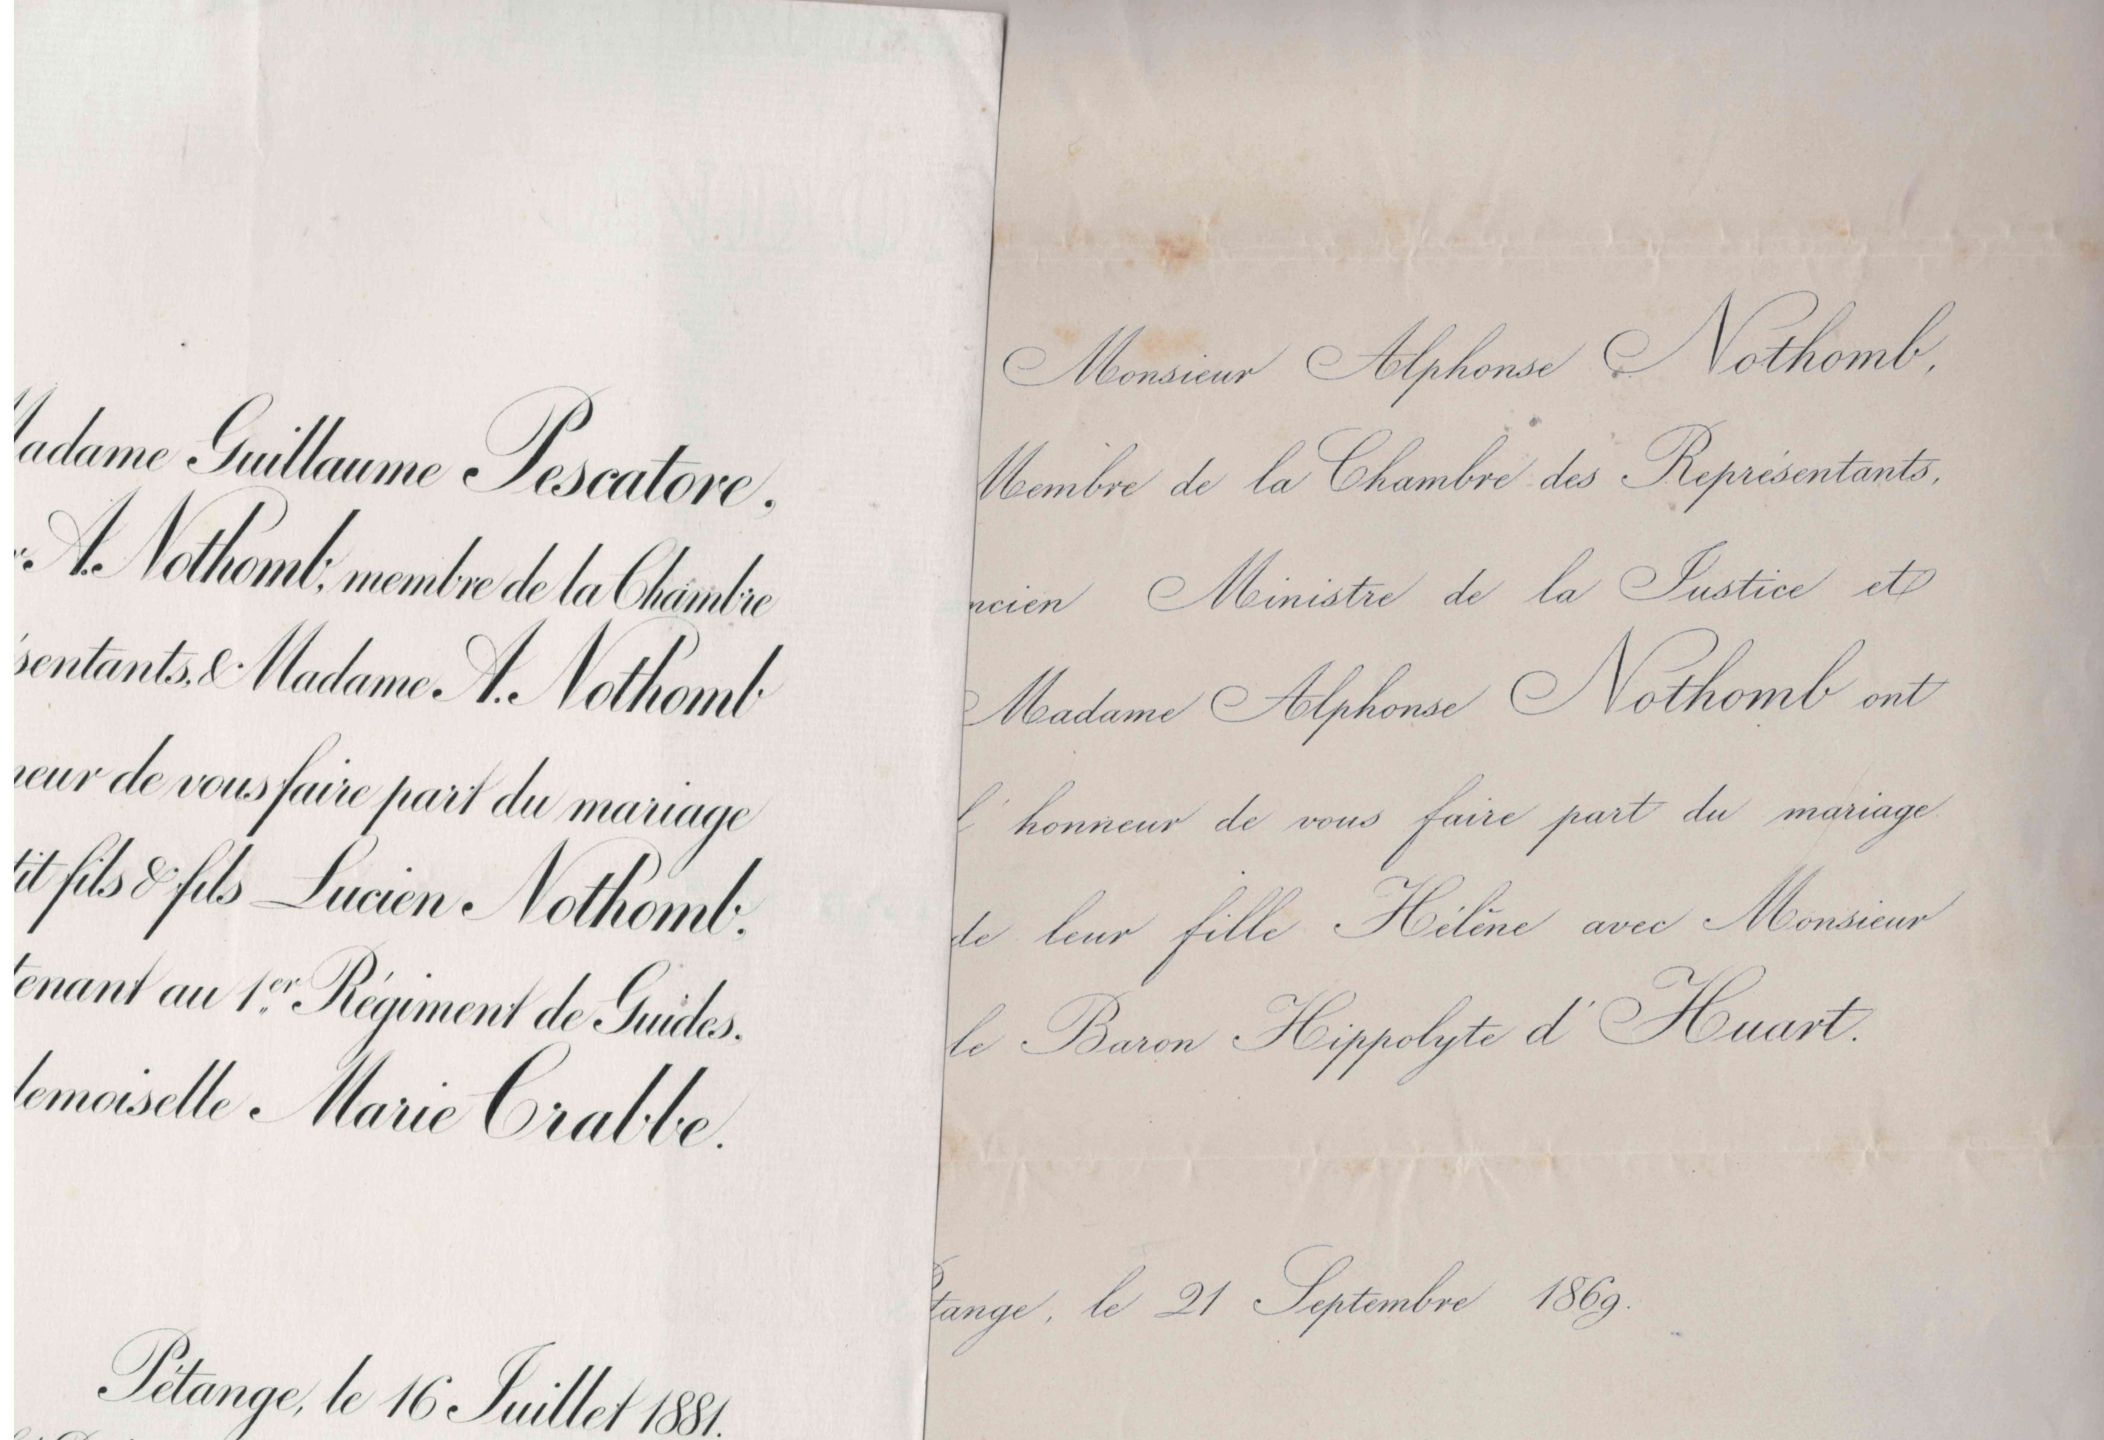 Madame Guillaume Pescatore,
A. Nothomb, membre de la Chambre
sentants, & Madame A. Nothomb
neur de vous faire part du mariage
tit fils & fils Lucien Nothomb,
tenant au 1er Régiment de Guides,
demoiselle Marie Crabbe.
Pétange, le 16 Juillet 1881.
Monsieur Alphonse Nothomb,
Membre de la Chambre des Représentants,
ncien Ministre de la Justice et
Madame Alphonse Nothomb ont
l'honneur de vous faire part du mariage
de leur fille Hélène avec Monsieur
le Baron Hippolyte d'Huart.
tange, le 21 Septembre 1869.